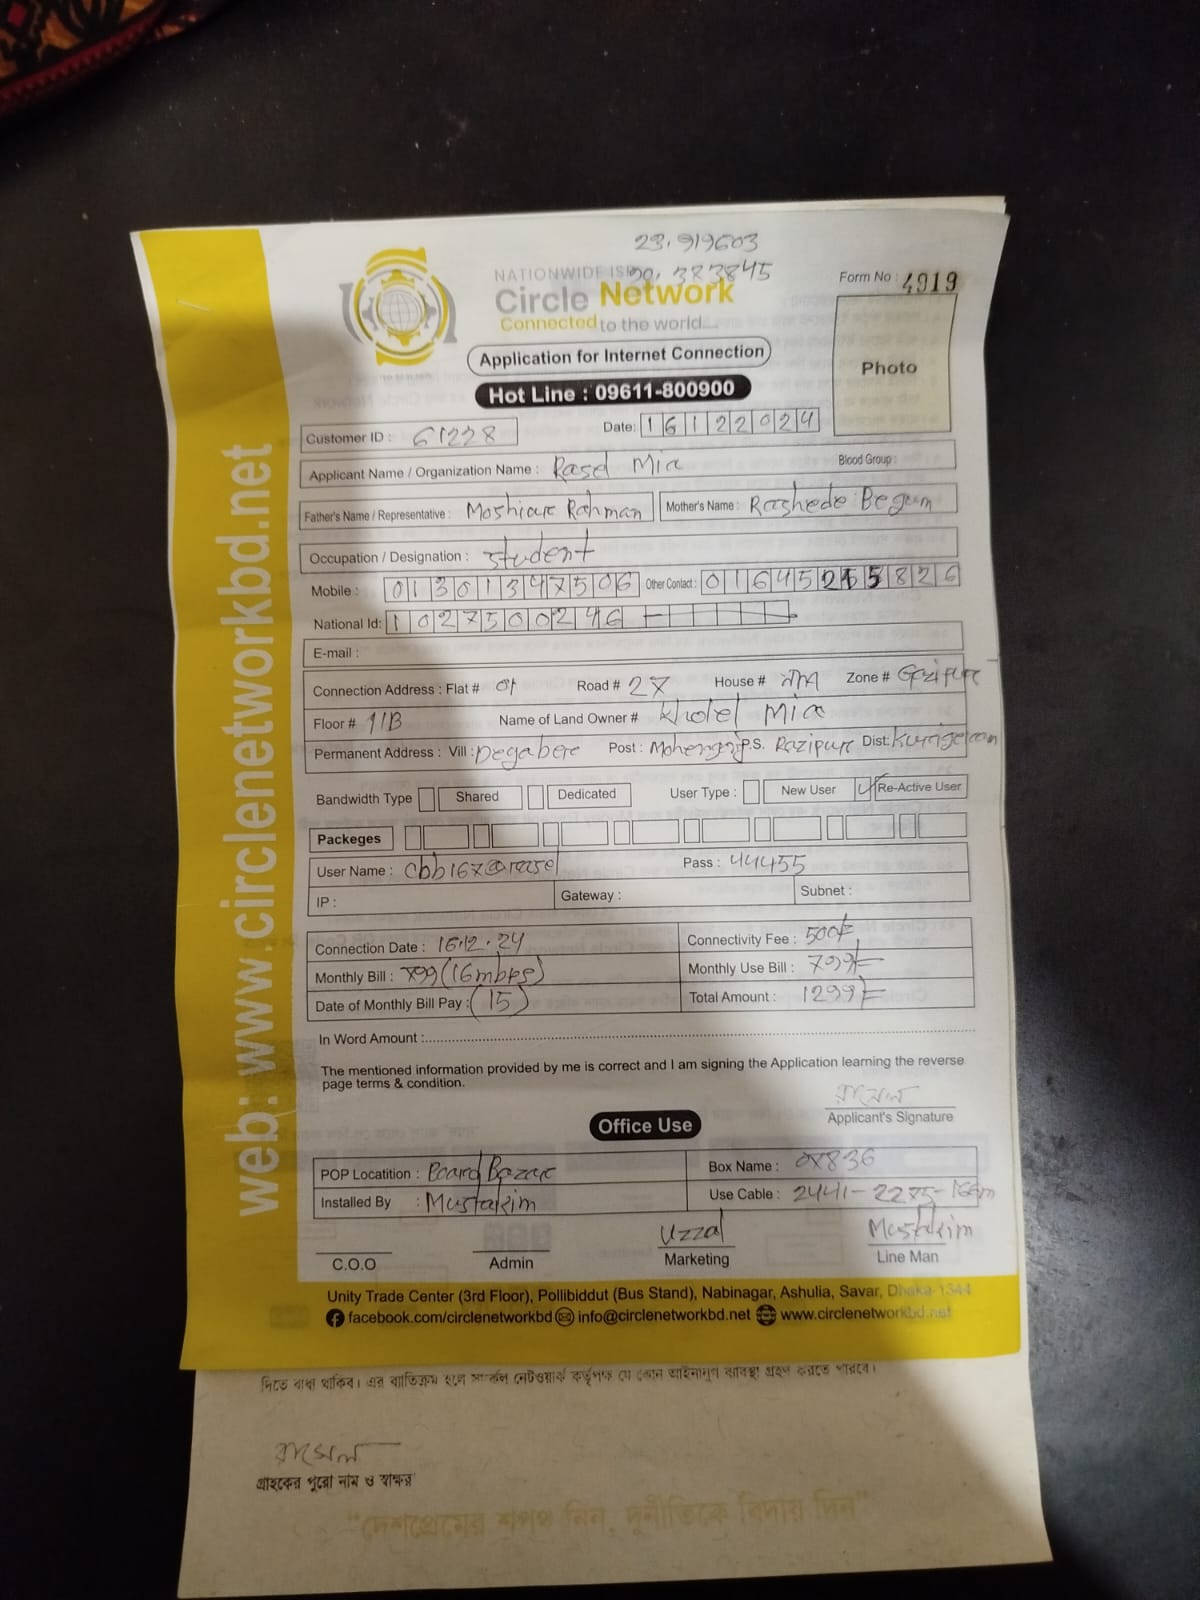 23.919603
NATIONWIDE ISP 90.383845
Circle Network
Connected to the world...
Form No : 4919
Photo
Application for Internet Connection
Hot Line : 09611-800900
Customer ID : 61228
Date: 16122024
Applicant Name / Organization Name : Rasel Mia
Blood Group :
Father's Name / Representative : Moshiar Rahman Mother's Name : Rashede Begum
Occupation / Designation : Student
Mobile : 01301347506 Other Contact : 01645215826
National Id: 1027500246
E-mail :
Connection Address : Flat # Road # 27 House # Zone # Gazipur
Floor # 11B Name of Land Owner # Mia
Permanent Address : Vill : Degabere Post : P.S. Razipur Dist: Kurigram
Bandwidth Type Shared Dedicated User Type : New User Re-Active User
Packeges
User Name : Pass : 44455
IP : Gateway : Subnet :
Connection Date : 16.12.24 Connectivity Fee : 500/-
Monthly Bill : 799 (16mbps) Monthly Use Bill : 799/-
Date of Monthly Bill Pay : (15) Total Amount : 1299/-
In Word Amount :
The mentioned information provided by me is correct and I am signing the Application learning the reverse
page terms & condition.
রাসেল
Applicant's Signature
Office Use
POP Locatition : Board Bazar Box Name :
Installed By : Mustakim Use Cable :
Uzzal Mustakim
C.O.O Admin Marketing Line Man
Unity Trade Center (3rd Floor), Pollibiddut (Bus Stand), Nabinagar, Ashulia, Savar, Dhaka-1344
facebook.com/circlenetworkbd info@circlenetworkbd.net www.circlenetworkbd.net
web: www.circlenetworkbd.net
দিতে বাধ্য থাকিব। এর ব্যতিক্রম হলে সার্কেল নেটওয়ার্ক কর্তৃপক্ষ যে কোন আইনানুগ ব্যবস্থা গ্রহণ করতে পারবে।
রাসেল
গ্রাহকের পুরো নাম ও স্বাক্ষর
"দেশপ্রেমের শপথ নিন, দুর্নীতিকে বিদায় দিন"